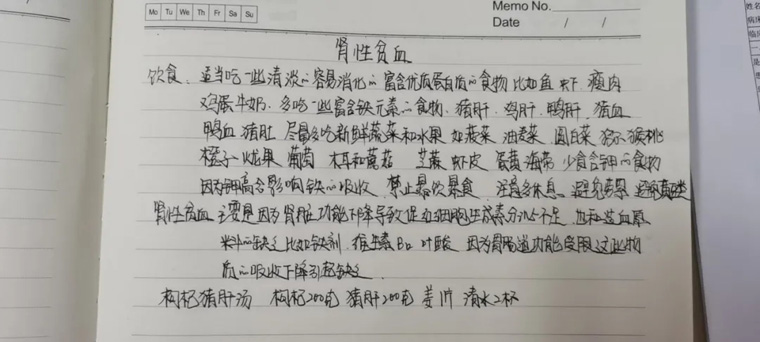 Mo Tu We Th Fr Sa Su
Memo No.
Date / /
肾性贫血
饮食、适当吃一些清淡的容易消化的富含优质蛋白质的食物比如鱼 虾 瘦肉
鸡蛋牛奶、多吃一些富含铁元素的食物、猪肝、鸡肝、鸭肝、猪血
鸭血 猪肚 尽量多吃新鲜蔬菜和水果 如菠菜 油麦菜 圆白菜 猕猴桃
橙子 火龙果 葡萄 木耳和蘑菇 芝麻 虾皮 蛋黄 海带 少食含钾的食物
因为钾高会影响铁的吸收 禁止暴饮暴食 注意多休息、避免劳累 避免
肾性贫血 主要是因为肾脏功能下降导致促红细胞生成素分泌不足 也和造血原
料的缺乏比如铁剂 维生素B12 叶酸 因为胃肠道功能受限这些物
质的吸收下降引起缺乏
枸杞猪肝汤 枸杞200克 猪肝200克 姜片 清水2杯
姓名